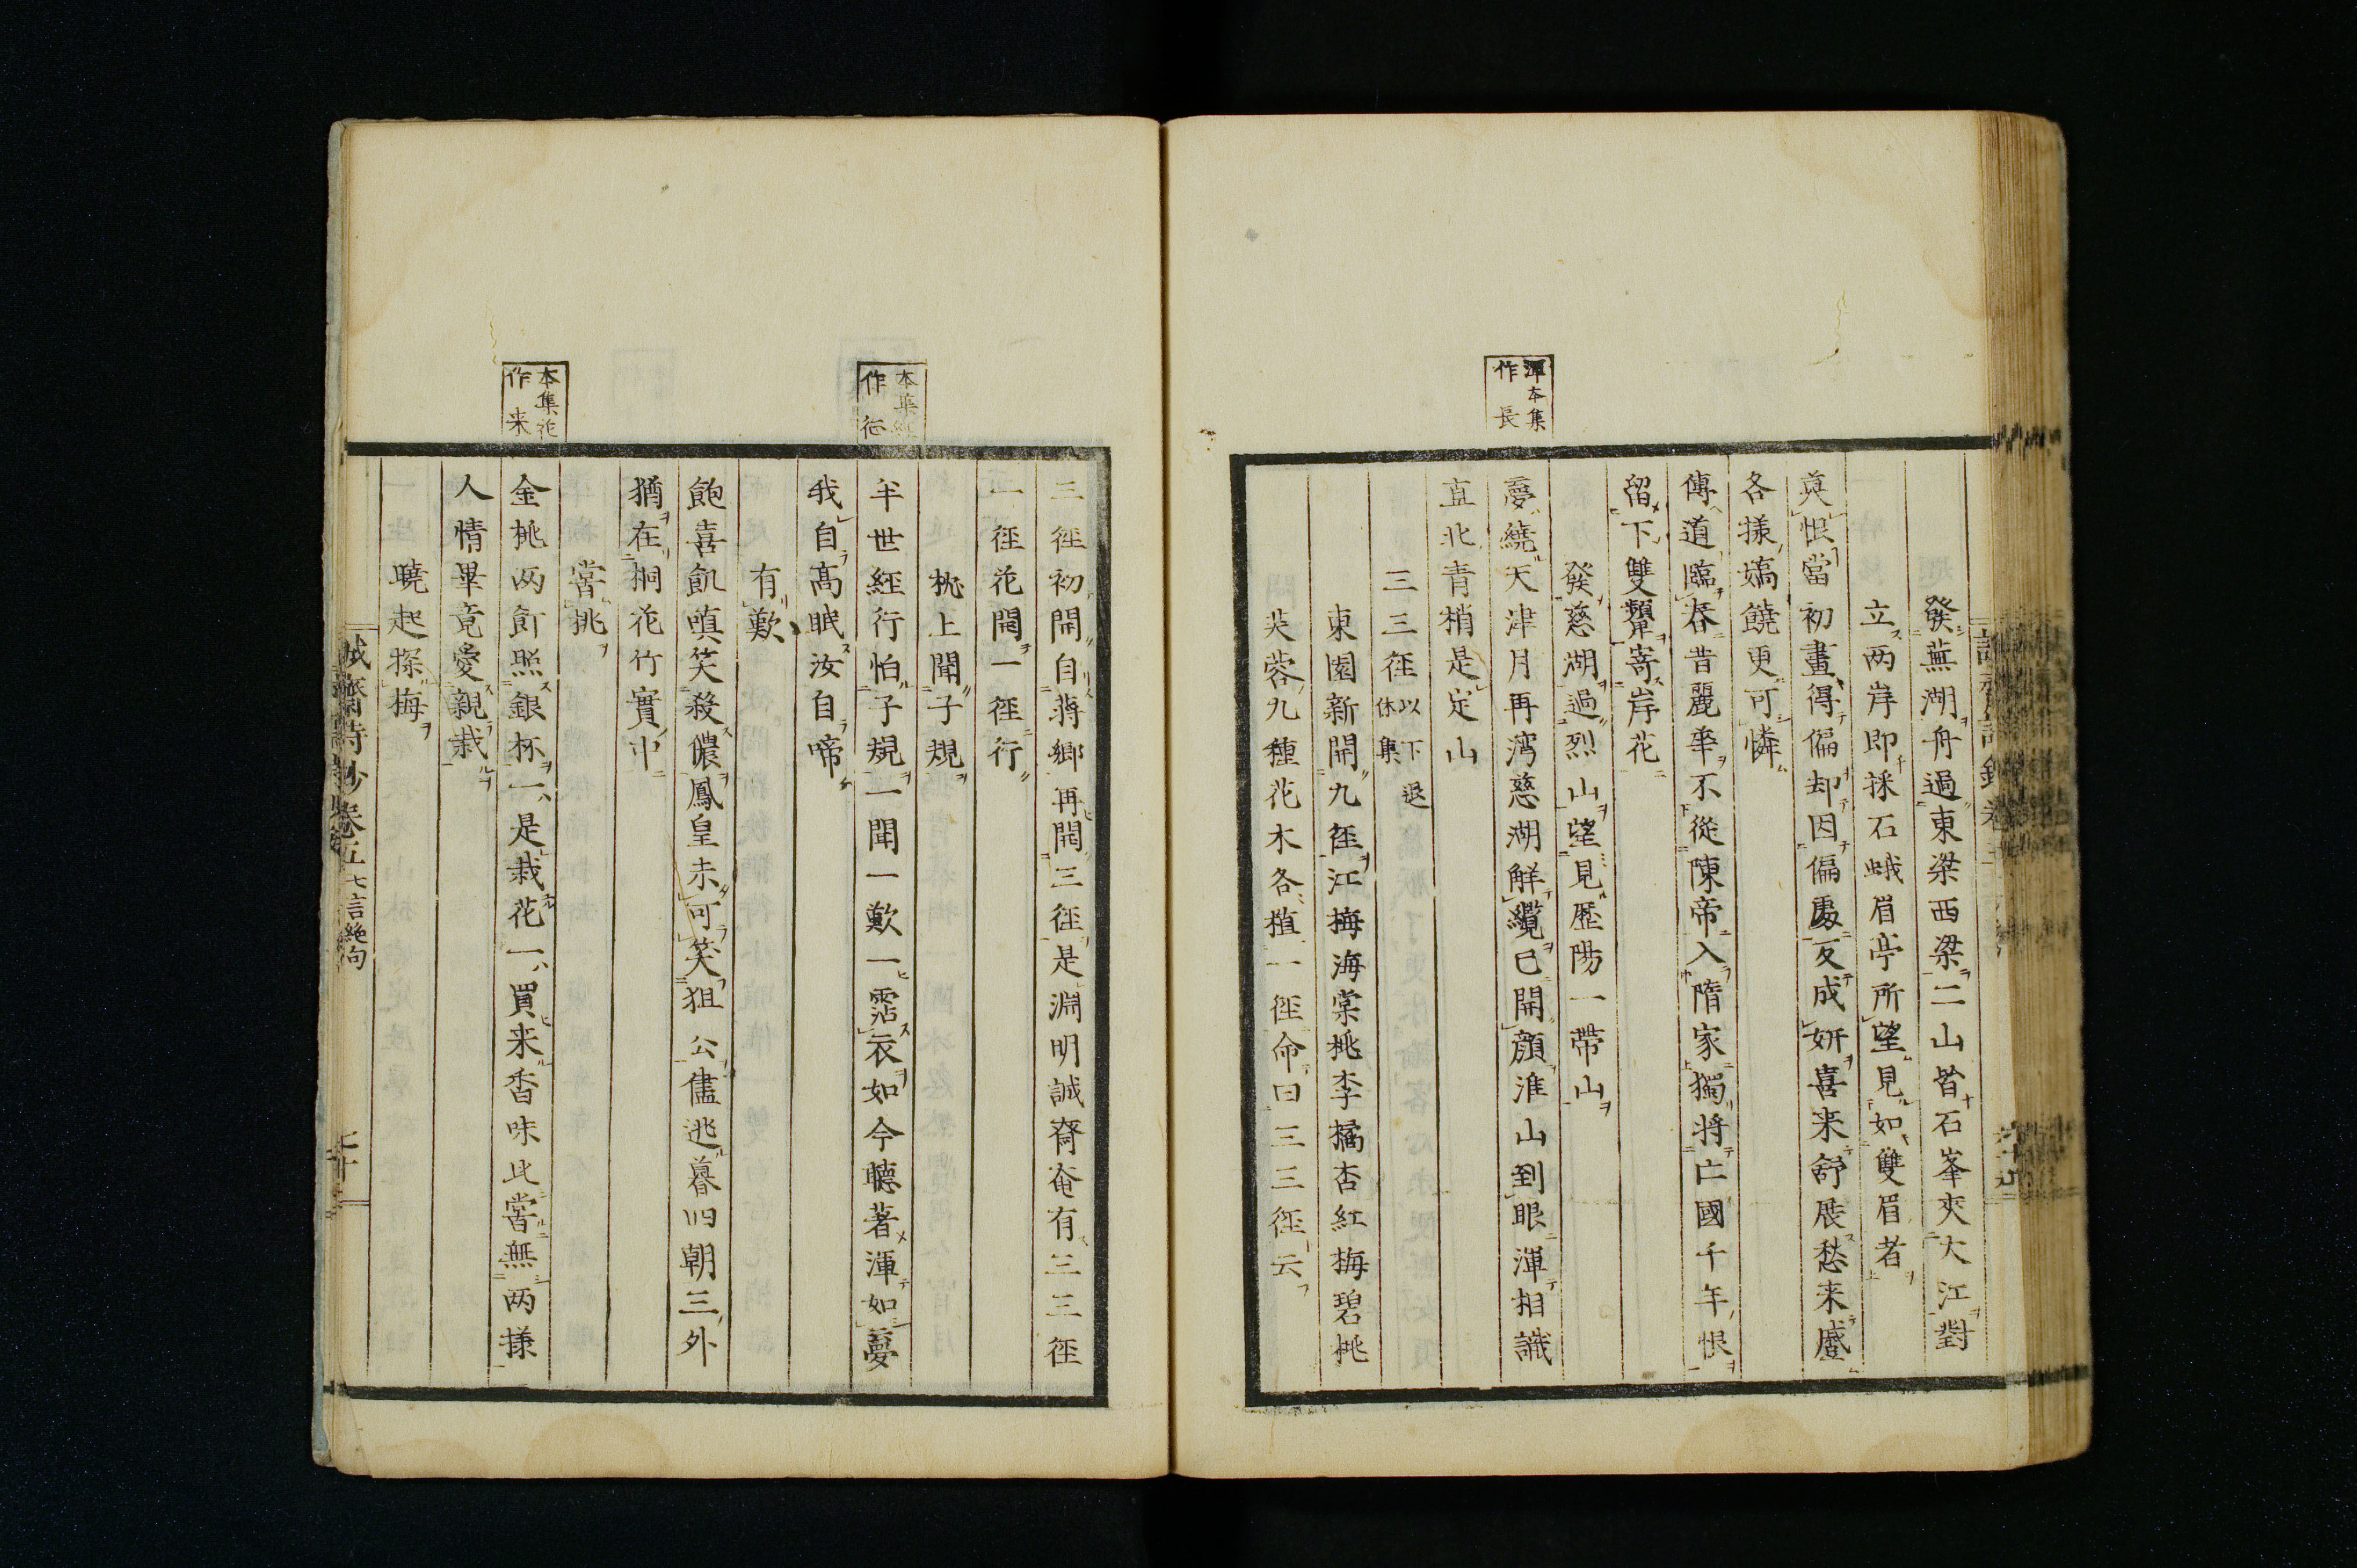 發蕪湖舟過東梁西梁二山皆石峯夾大江對
立两岸即採石蛾眉亭所望見如雙眉者
莫恨當初畫得偏却因偏處反成妍喜来舒展愁来蹙
各様嬌饒更可憐
傳道臨春昔麗華不從陳帝入隋家獨將亡國千年恨
留下雙顰嵜岸花
發慈湖過烈山望見歷陽一帶山
渾本集
作長
夢繞天津月再湾慈湖觧纜已開顔淮山到眼渾相識
直北青梢是定山
三三徑以下退
休集
東園新開九徑江梅海棠桃李橘杏紅梅碧桃
芙蓉九種花木各植一徑命曰三三徑云
三徑初開自蔣郷再開三徑是淵明誠齋奄有三三徑
一徑花開一徑行
桃上聞子規
本集經
作征
半世經行怕子規一聞一歎一霑衣如今聴著渾如夢
我自髙眠汝自啼
有歎
飽喜飢嗔笑殺儂鳳皇未可笑狙公儘逃暮四朝三外
猶在桐花竹實中
甞桃
本集花
作来
金桃两飣照銀杯一是栽花一買来香味比甞無两様
人情畢竟愛親栽
曉起探梅
誠齋詩抄卷五 七言絶句